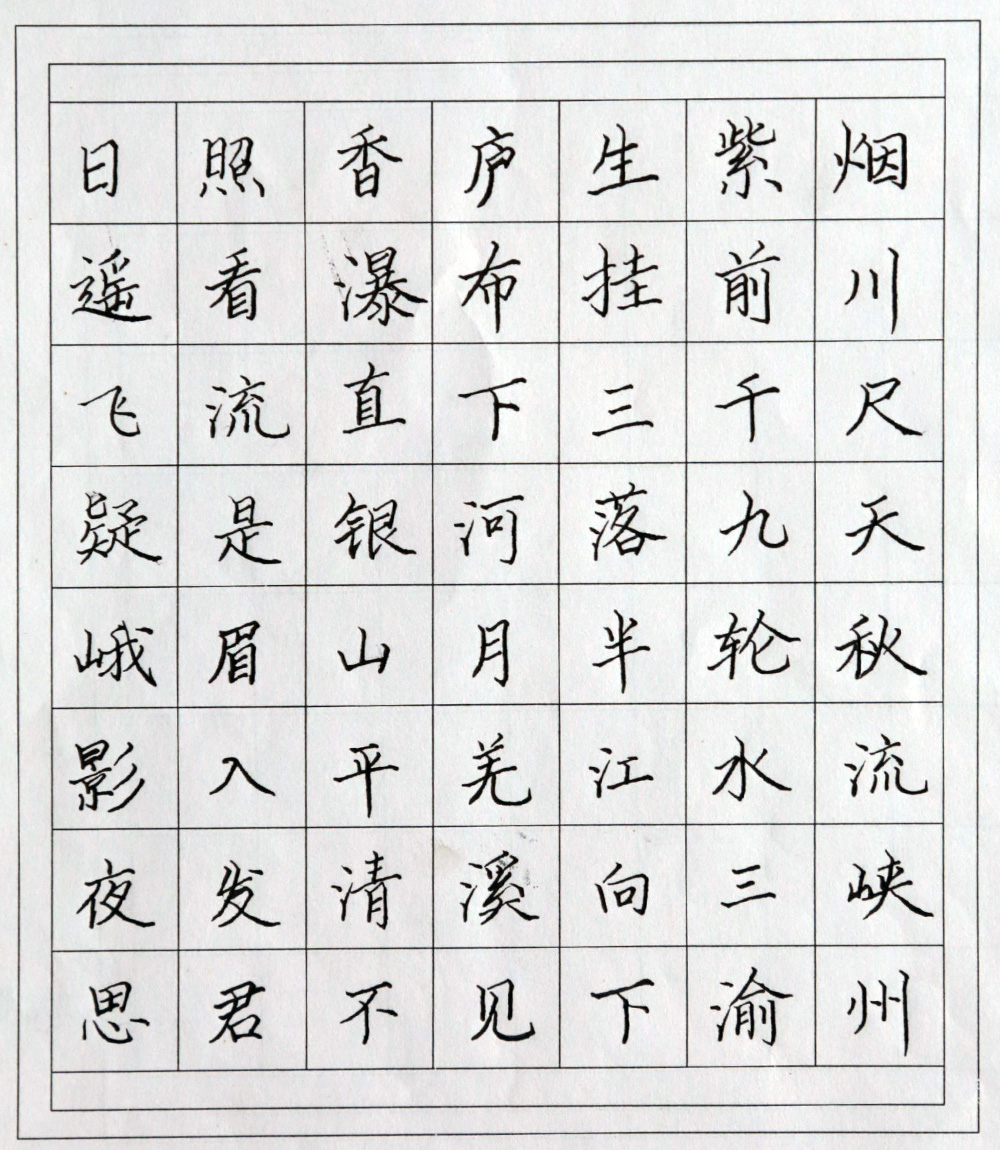 日照香庐生紫烟
遥看瀑布挂前川
飞流直下三千尺
疑是银河落九天
峨眉山月半轮秋
影入平羌江水流
夜发清溪向三峡
思君不见下渝州